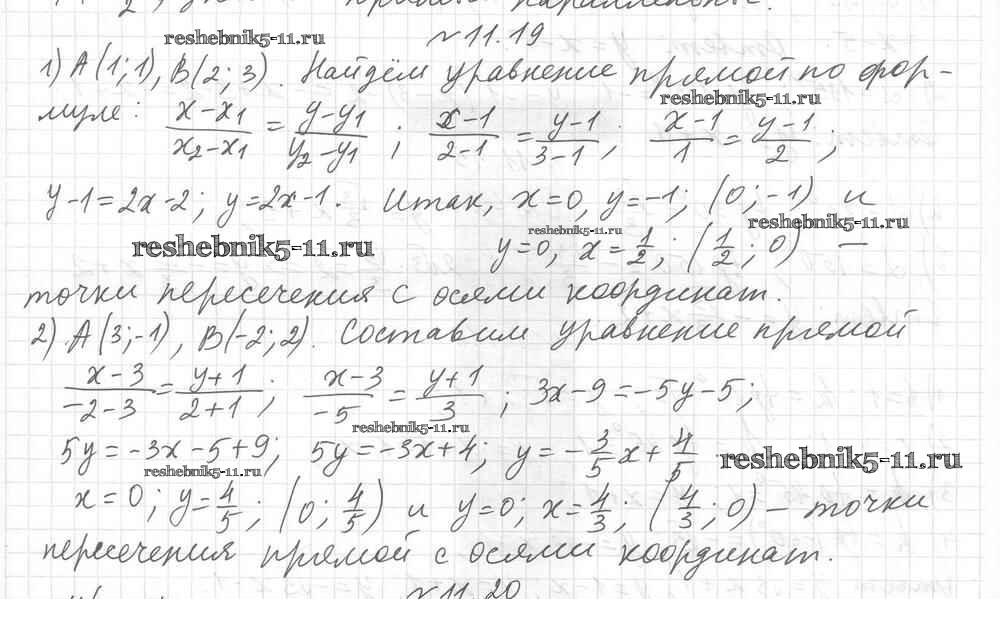 прямые параллельные.
reshebnik5-11.ru
№11.19
1) A(1;1), B(2; 3). Найдём уравнение прямой по фор-
reshebnik5-11.ru
муле: (x-x₁)/(x₂-x₁) = (y-y₁)/(y₂-y₁) ; (x-1)/(2-1) = (y-1)/(3-1); (x-1)/1 = (y-1)/2;
y-1=2x-2; y=2x-1. Итак, x=0, y=-1; (0;-1) и
reshebnik5-11.ru reshebnik5-11.ru
reshebnik5-11.ru y=0, x=1/2; (1/2; 0) —
точки пересечения с осями координат.
2) A(3;-1), B(-2; 2). Составим уравнение прямой
(x-3)/(-2-3) = (y+1)/(2+1); (x-3)/(-5) = (y+1)/3; 3x-9=-5y-5;
reshebnik5-11.ru
5y=-3x-5+9; 5y=-3x+4; y=-3/5x+4/5. reshebnik5-11.ru
reshebnik5-11.ru
x=0; y=4/5; (0; 4/5) и y=0; x=4/3; (4/3; 0) – точки
пересечения прямой с осями координат.
№11.20